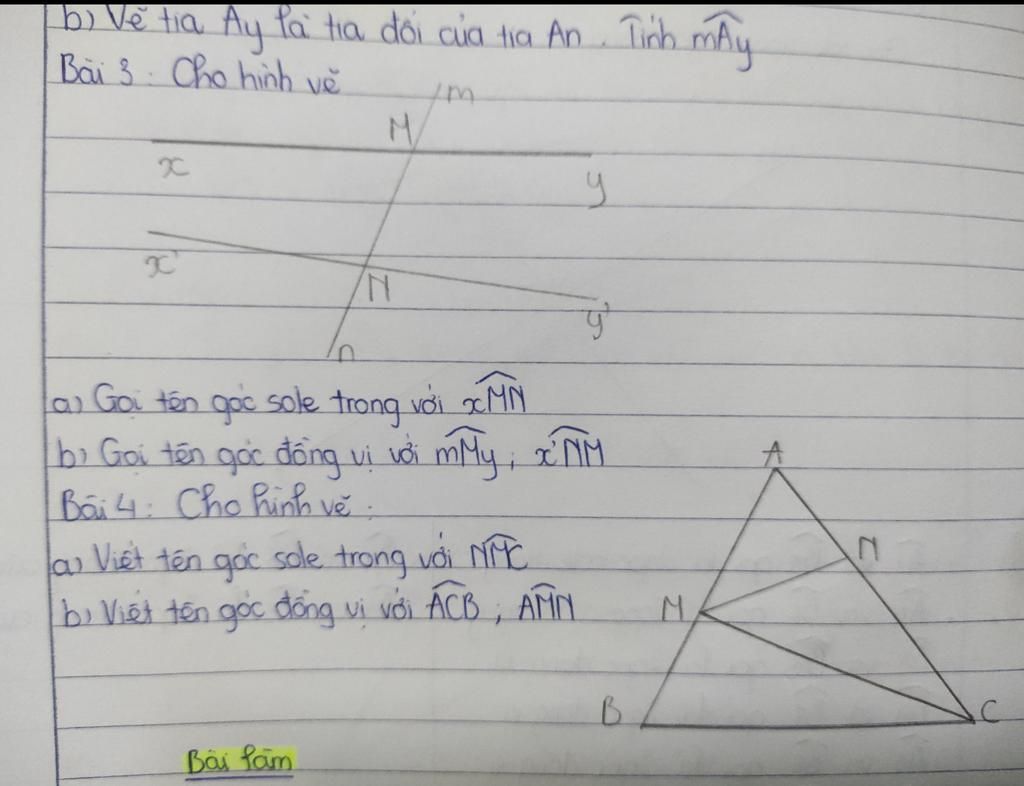 b) Vẽ tia Ay là tia đối của tia An. Tính mAy
Bài 3: Cho hình vẽ
m
M
x
y
x'
N
y'
n
a) Gọi tên góc sole trong với xMN
b) Gọi tên góc đồng vị với mMy; x'NM
A
Bài 4: Cho hình vẽ:
N
a) Viết tên góc sole trong với NMC
b) Viết tên góc đồng vị với ACB; AMN
M
B
C
Bài làm